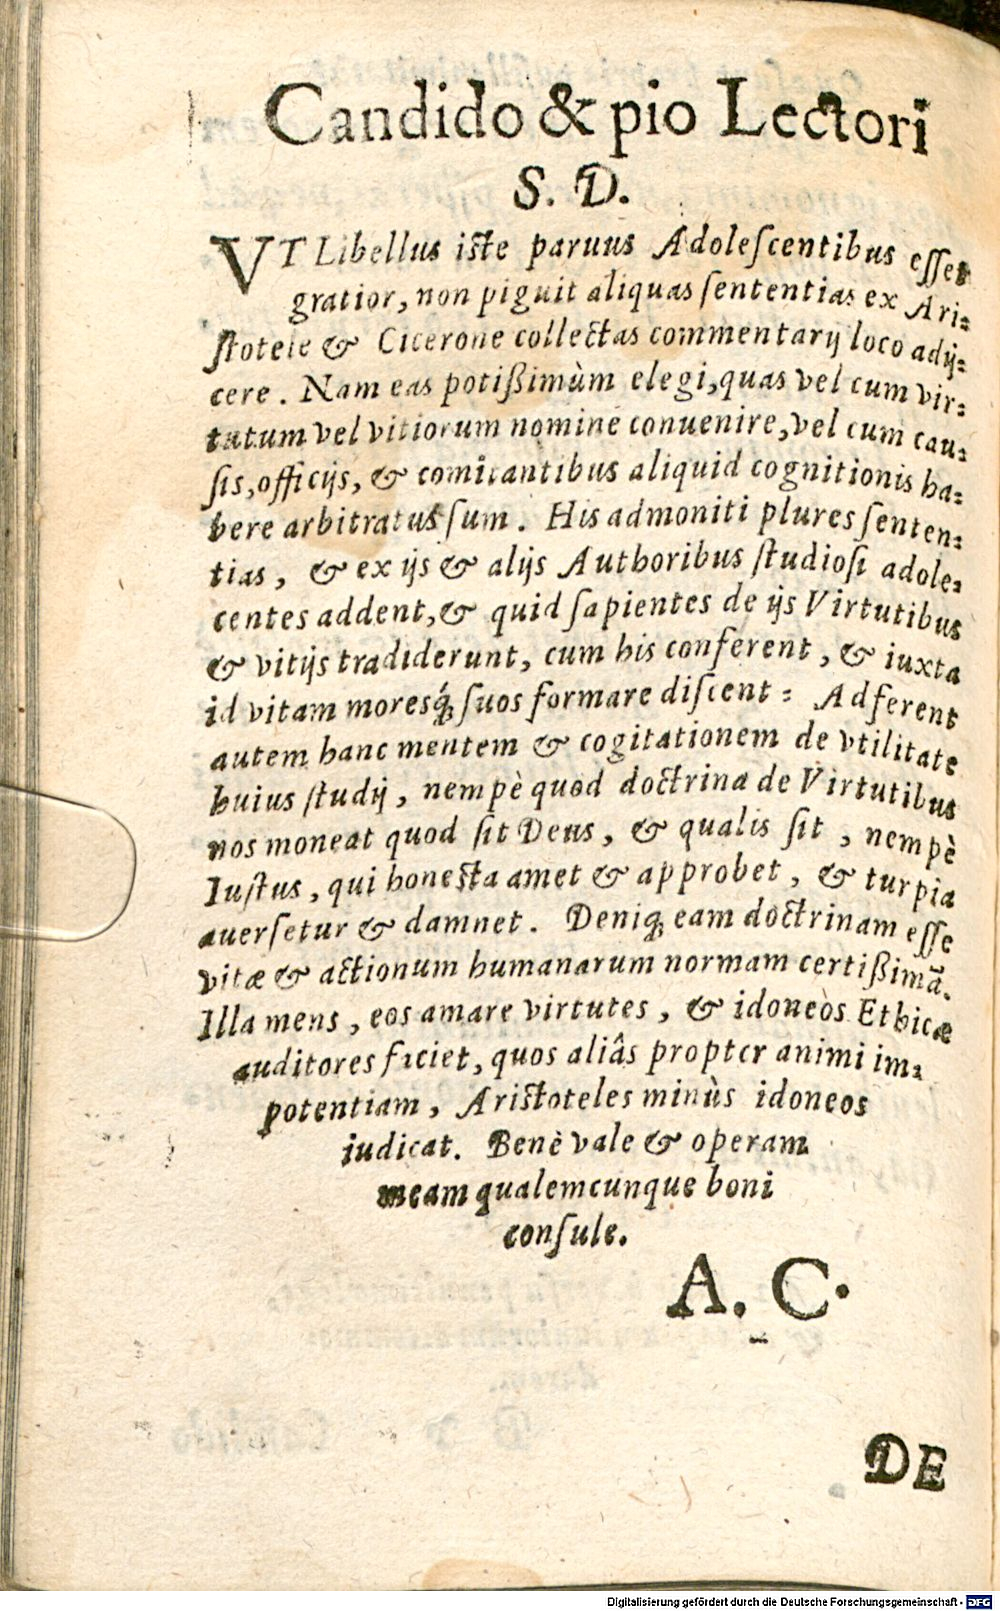 Candido & pio Lectori
S. D.
VT Libellus iste paruus Adolescentibus esset
gratior, non piguit aliquas sententias ex Ari⸗
stotele & Cicerone collectas commentarij loco adij⸗
cere. Nam eas potißimùm elegi, quas vel cum vir⸗
tutum vel vitiorum nomine conuenire, vel cum cau⸗
sis, officijs, & comitantibus aliquid cognitionis ha⸗
bere arbitratus sum. His admoniti plures senten⸗
tias, & ex ijs & alijs Authoribus studiosi adole⸗
centes addent, & quid sapientes de ijs Virtutibus
& vitijs tradiderunt, cum his conferent, & iuxta
id vitam moresq́; suos formare discent: Adferent
autem hanc mentem & cogitationem de vtilitate
huius studij, nempè quod doctrina de Virtutibus
nos moneat quod sit Deus, & qualis sit, nempè
Iustus, qui honesta amet & approbet, & turpia
auersetur & damnet. Deniq; eam doctrinam esse
vitæ & actionum humanarum normam certißimã.
Illa mens, eos amare virtutes, & idoneòs Ethicæ
auditores faciet, quos aliâs propter animi im⸗
potentiam, Aristoteles minùs idoneos
iudicat. Benè vale & operam
meam qualemcunque boni
consule.
A. C.
DE
Digitalisierung gefördert durch die Deutsche Forschungsgemeinschaft - DFG